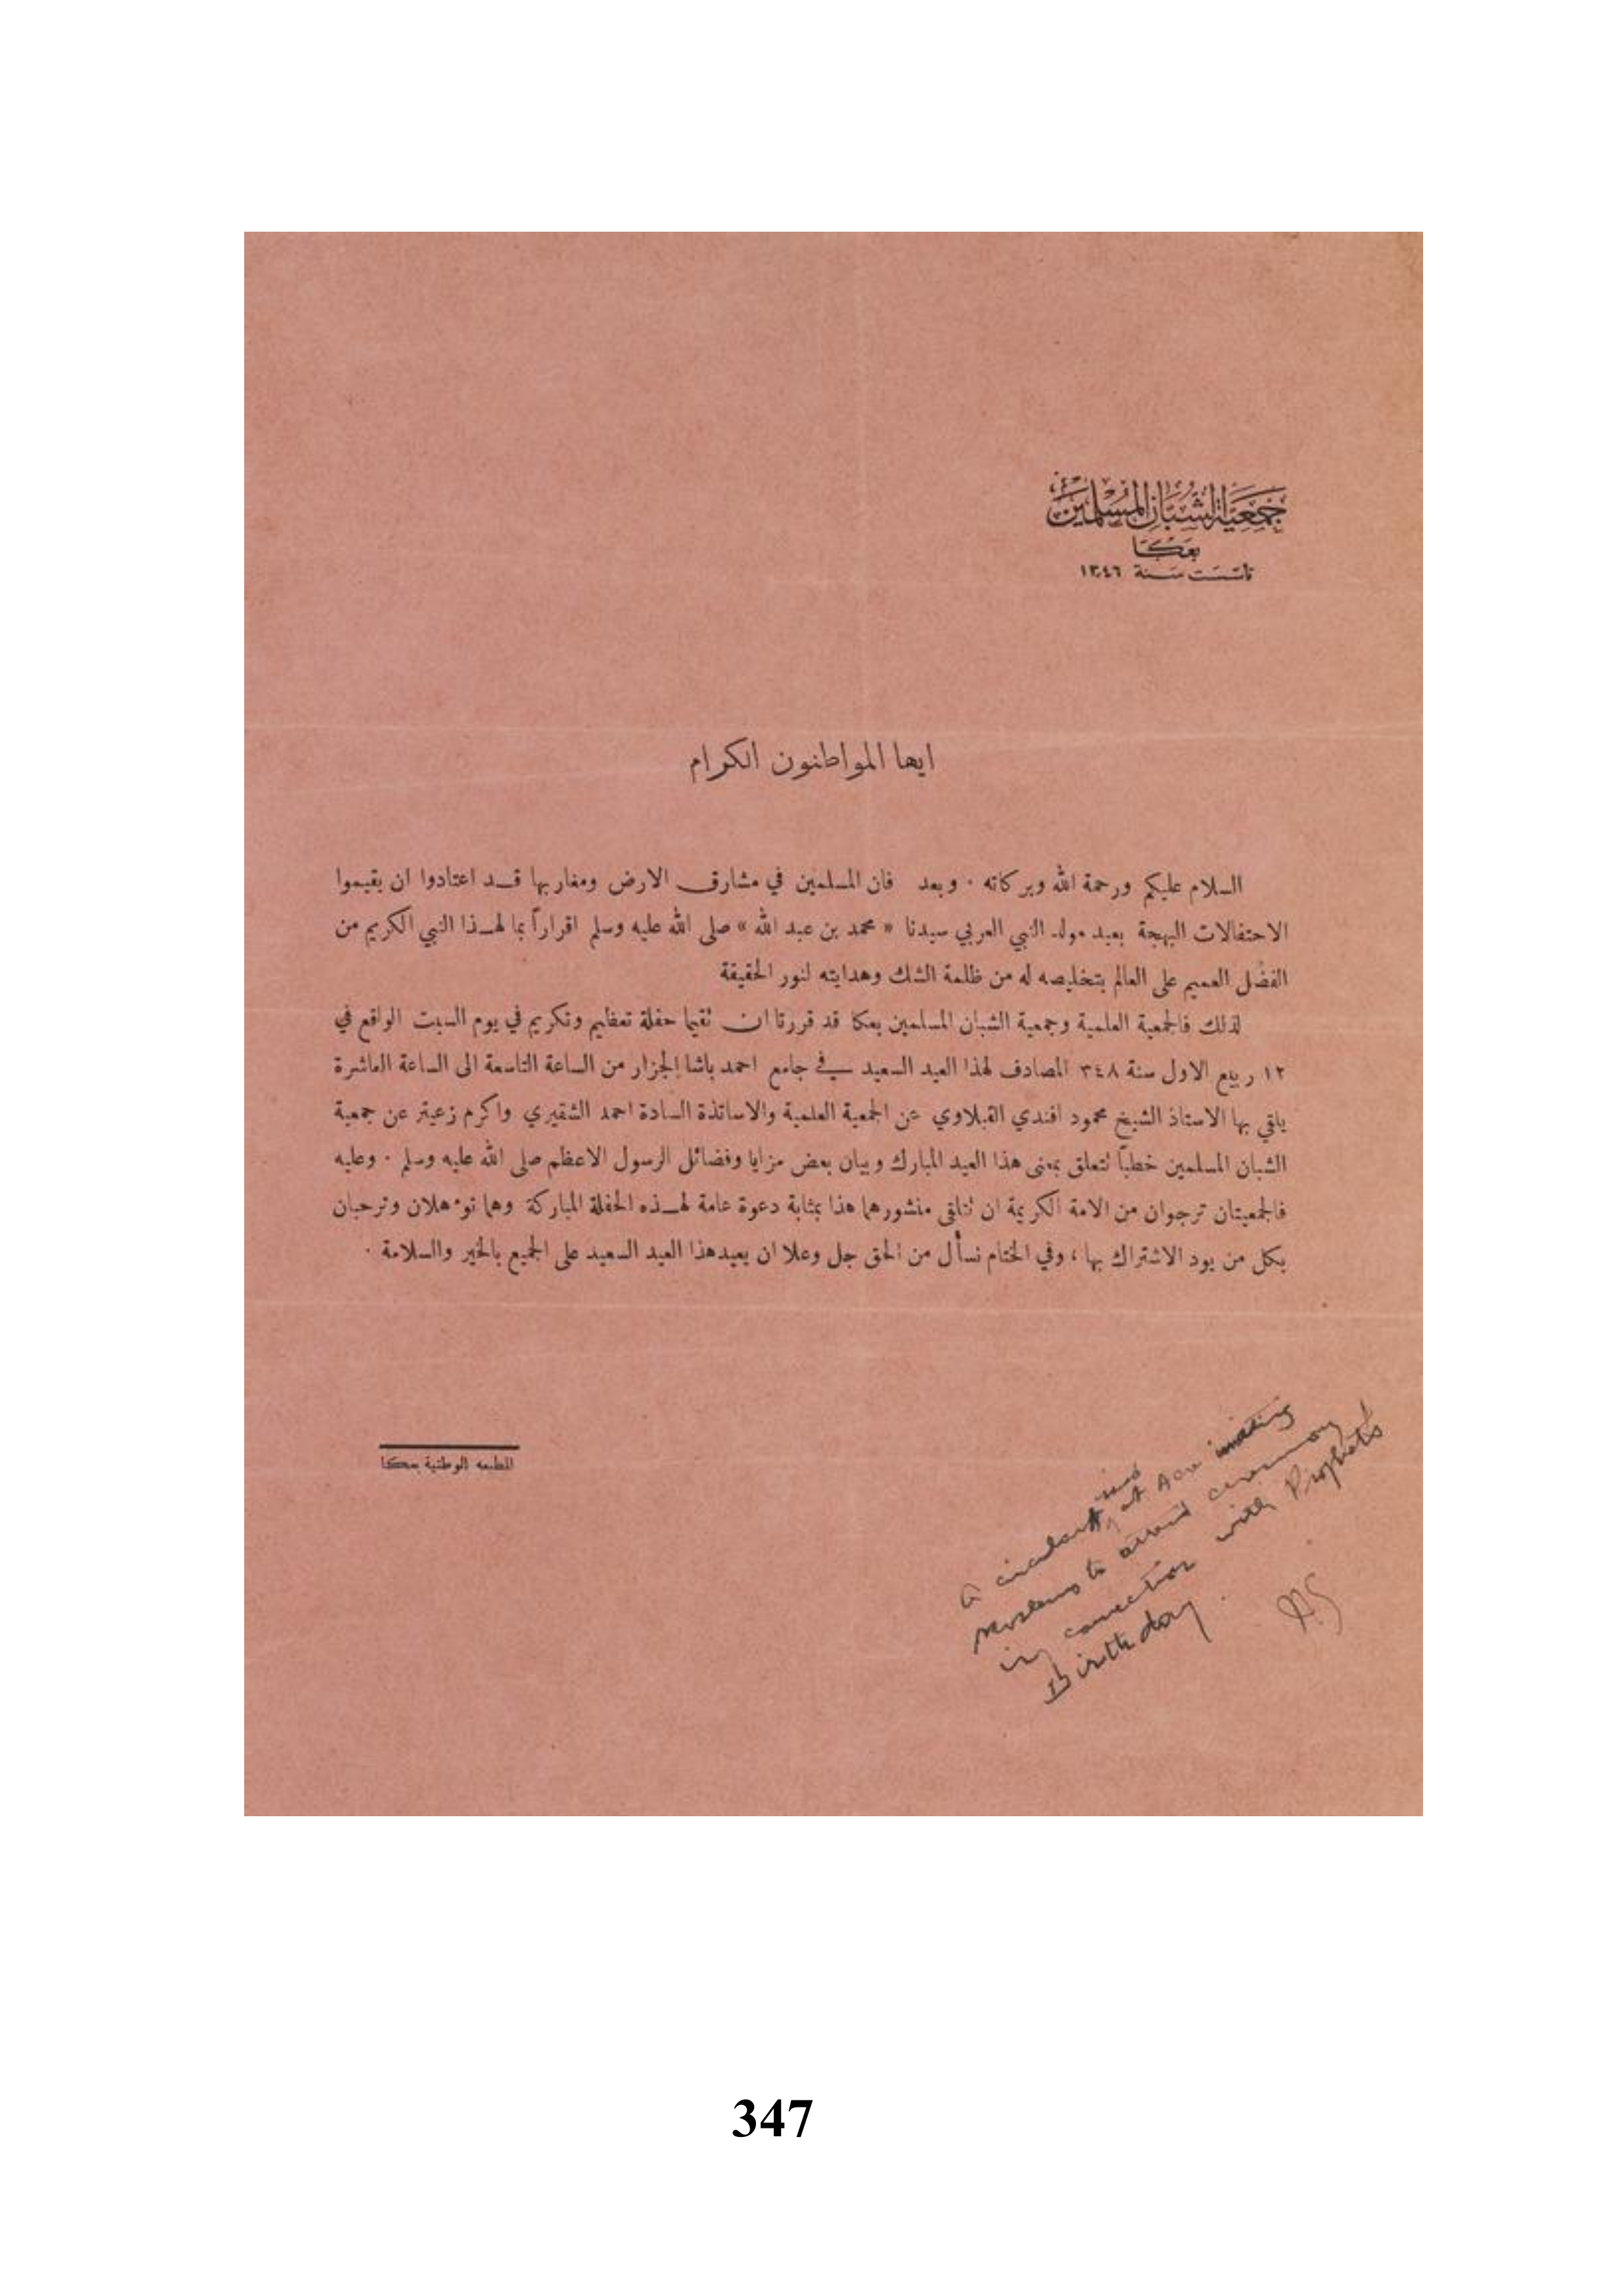 جمعية الشبان المسلمين
بعكا
تأسست سنة ١٣٤٦
ايها المواطنون الكرام
السلام عليكم ورحمة الله وبركاته ٠ وبعد فان المسلمين في مشارق الارض ومغاربها قد اعتادوا ان يقيموا
الاحتفالات البهجة بعيد مولد النبي العربي سيدنا « محمد بن عبد الله » صلى الله عليه وسلم اقراراً بما لهذا النبي الكريم من
الفضل العميم على العالم بتخليصه له من ظلمة الشك وهدايته لنور الحقيقة
لذلك فالجمعية العلمية وجمعية الشبان المسلمين بعكا قد قررتا ان تقيما حفلة تعظيم وتكريم في يوم السبت الواقع في
١٢ ربيع الاول سنة ٣٤٨ المصادف لهذا العيد السعيد في جامع احمد باشا الجزار من الساعة التاسعة الى الساعة العاشرة
يلقي بها الاستاذ الشيخ محمود افندي القبلاوي عن الجمعية العلمية والاساتذة السادة احمد الشقيري واكرم زعيتر عن جمعية
الشبان المسلمين خطباً تتعلق بمعنى هذا العيد المبارك وبيان بعض مزايا وفضائل الرسول الاعظم صلى الله عليه وسلم ٠ وعليه
فالجمعيتان ترجوان من الامة الكريمة ان تتلقى منشورهما هذا بمثابة دعوة عامة لهذه الحفلة المباركة وهما تؤهلان وترحبان
بكل من يود الاشتراك بها ، وفي الختام نسأل من الحق جل وعلا ان يعيد هذا العيد السعيد على الجميع بالخير والسلامة ٠
المطبعه الوطنية بعكا
A circular at Acre inviting
Moslems to attend ceremony
in connection with Prophet's
Birthday.
347